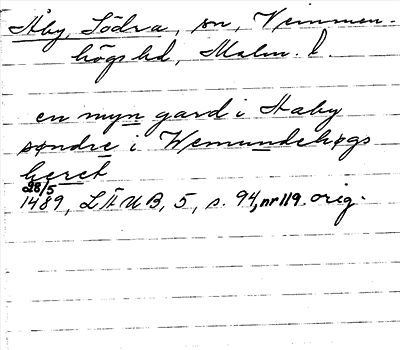 Åby, Södra, sn, Vemmen-
högs hd, Malm. l.
en myn gard i Haby
søndre i Wemundehøgs
heret
28/5
1489, LÄUB, 5, s. 94, nr 119. orig.